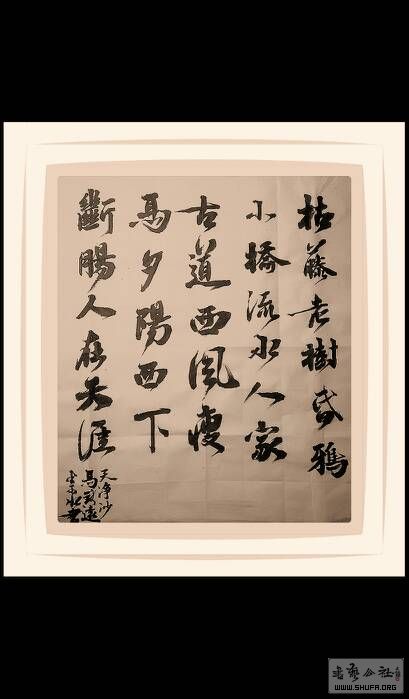 枯藤老樹昏鴉
小橋流水人家
古道西風瘦
馬夕陽西下
斷腸人在天涯
天净沙
馬致遠
書藝公社
WWW.SHUFA.ORG